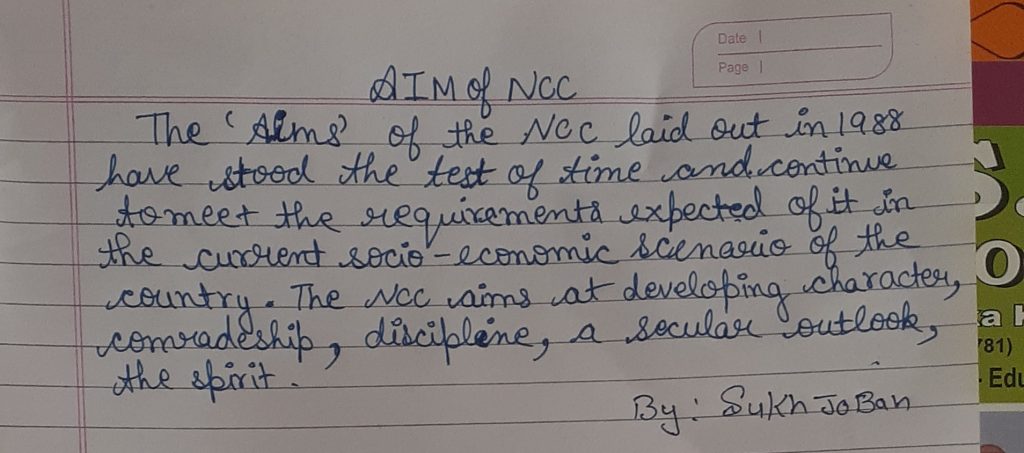 Date
Page
AIM of NCC
The 'Aims' of the NCC laid out in 1988
have stood the test of time and continue
to meet the requirements expected of it in
the current socio-economic scenario of the
country. The NCC aims at developing character,
comradeship, discipline, a secular outlook,
the spirit.
By: Sukh JoBan
781)
Edu